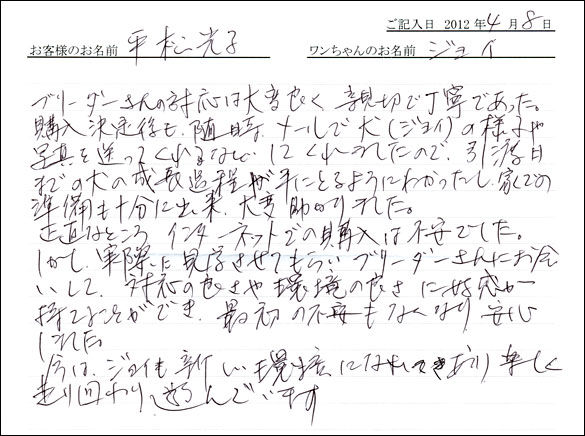 ご記入日 2012年4月8日
お客様のお名前 平松光子 ワンちゃんのお名前 ジョイ
ブリーダーさんの対応は大変良く親切で丁寧であった。
購入決定後も、随時、メールで犬(ジョイ)の様子や
写真を送ってくれるなどしてくれましたので、引渡日
までの犬の成長過程が手にとるようにわかったし、家での
準備も十分に出来、大変助かりました。
正直なところ インターネットでの購入は不安でした。
しかし、実際に見学させてもらい、ブリーダーさんにお会
いして、対応の良さや環境の良さに好感が
持てることができ、最初の不安もなくなり安心
しました。
今は、ジョイも新しい環境になれてきており 楽しく
走り回わり遊んでいます